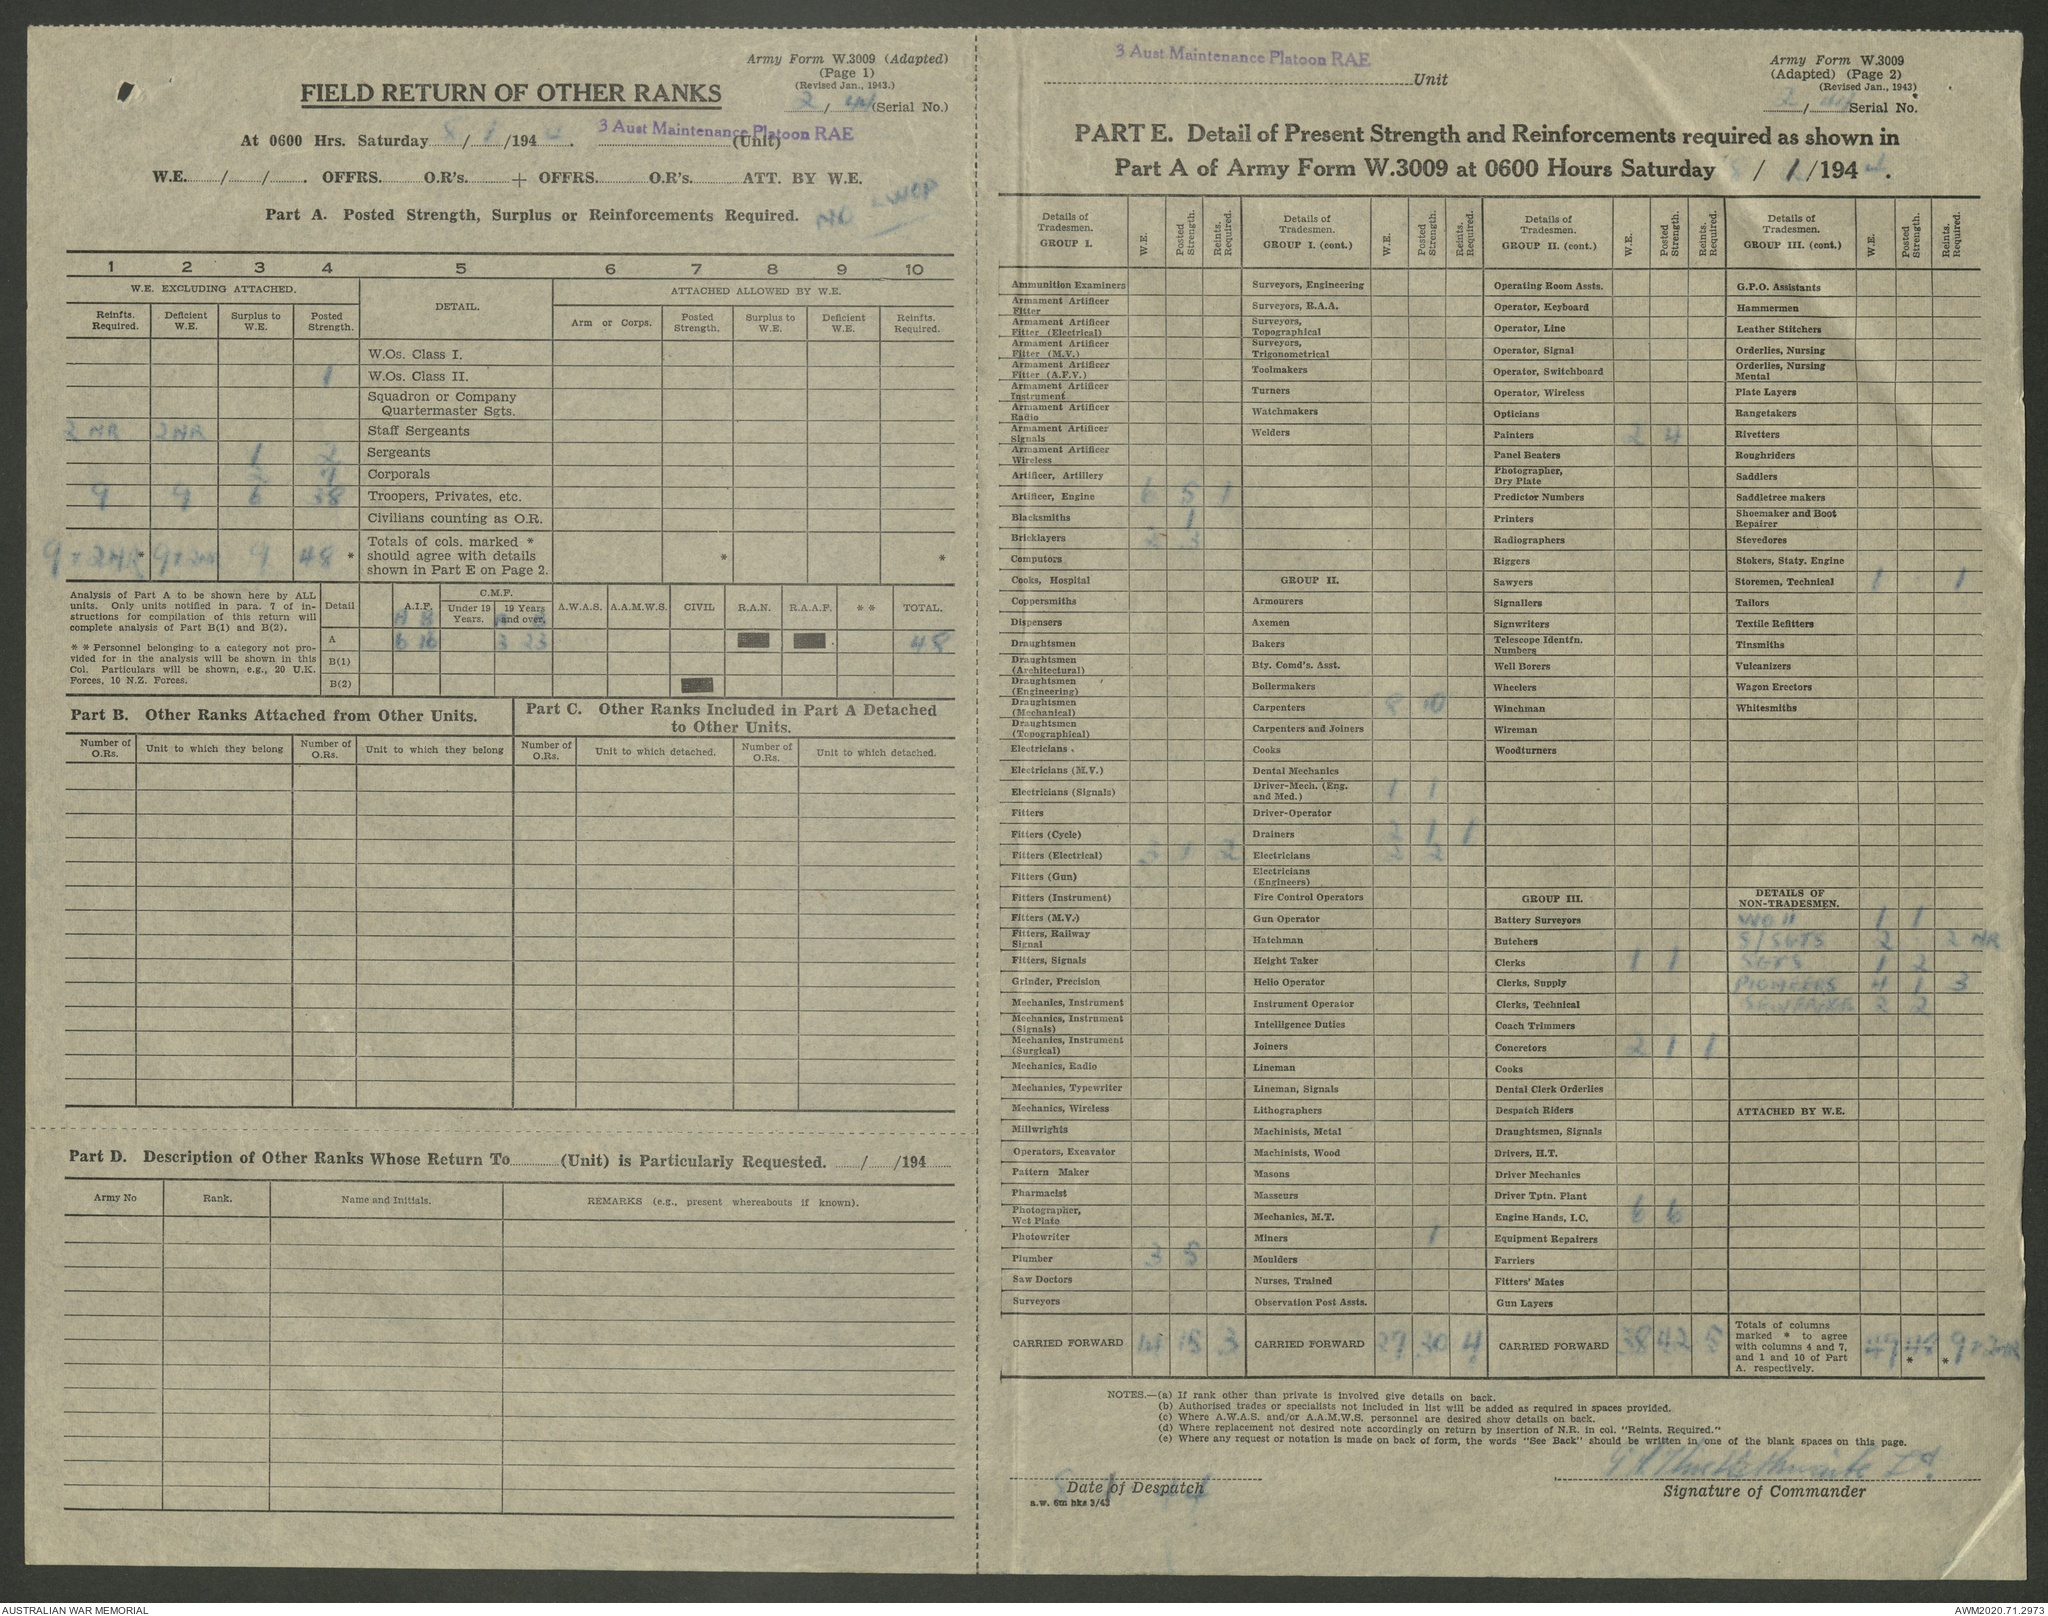 Army Form W.3009 (Adapted)
(Page 1)
(Revised Jan., 1943.)
FIELD RETURN OF OTHER RANKS
2 / (Serial No.)
At 0600 Hrs. Saturday 8 / 1 /194 4. 3 Aust Maintenance Platoon RAE (Unit)
W.E. / / . OFFRS. O.R's. + OFFRS. O.R's. ATT. BY W.E.
Part A. Posted Strength, Surplus or Reinforcements Required.
1 2 3 4 5 6 7 8 9 10
W.E. EXCLUDING ATTACHED. DETAIL. ATTACHED ALLOWED BY W.E.
Reinfts. Required. Deficient W.E. Surplus to W.E. Posted Strength. Arm or Corps. Posted Strength. Surplus to W.E. Deficient W.E. Reinfts. Required.
W.Os. Class I.
1 W.Os. Class II.
Squadron or Company Quartermaster Sgts.
2 NR 2 NR Staff Sergeants
1 2 Sergeants
2 7 Corporals
9 9 6 38 Troopers, Privates, etc.
Civilians counting as O.R.
9 + 2NR * 9 + 2NR 9 48 * Totals of cols. marked * should agree with details shown in Part E on Page 2. * *
Analysis of Part A to be shown here by ALL units. Only units notified in para. 7 of instructions for compilation of this return will complete analysis of Part B(1) and B(2).
* * Personnel belonging to a category not provided for in the analysis will be shown in this Col. Particulars will be shown, e.g., 20 U.K. Forces, 10 N.Z. Forces.
Detail A.I.F. C.M.F. Under 19 Years. 19 Years and over. A.W.A.S. A.A.M.W.S. CIVIL R.A.N. R.A.A.F. * * TOTAL.
A B
A 6 16 3 23 48
B(1)
B(2)
Part B. Other Ranks Attached from Other Units.
Number of O.Rs. Unit to which they belong Number of O.Rs. Unit to which they belong
Part C. Other Ranks Included in Part A Detached to Other Units.
Number of O.Rs. Unit to which detached. Number of O.Rs. Unit to which detached.
Part D. Description of Other Ranks Whose Return To (Unit) is Particularly Requested. / /194
Army No Rank. Name and Initials. REMARKS (e.g., present whereabouts if known).
3 Aust Maintenance Platoon RAE Unit
Army Form W.3009
(Adapted) (Page 2)
(Revised Jan., 1943)
2 / Serial No.
PART E. Detail of Present Strength and Reinforcements required as shown in
Part A of Army Form W.3009 at 0600 Hours Saturday 8 / 1 /194 4.
Details of Tradesmen. GROUP I. W.E. Posted Strength. Reints. Required.
Ammunition Examiners
Armament Artificer Fitter
Armament Artificer Fitter (Electrical)
Armament Artificer Fitter (M.V.)
Armament Artificer Fitter (A.F.V.)
Armament Artificer Instrument
Armament Artificer Radio
Armament Artificer Signals
Armament Artificer Wireless
Artificer, Artillery
Artificer, Engine 6 5 1
Blacksmiths 1
Bricklayers 2 3
Computors
Cooks, Hospital
Coppersmiths
Dispensers
Draughtsmen
Draughtsmen (Architectural)
Draughtsmen (Engineering)
Draughtsmen (Mechanical)
Draughtsmen (Topographical)
Electricians
Electricians (M.V.)
Electricians (Signals)
Fitters
Fitters (Cycle)
Fitters (Electrical) 3 1 2
Fitters (Gun)
Fitters (Instrument)
Fitters (M.V.)
Fitters, Railway Signal
Fitters, Signals
Grinder, Precision
Mechanics, Instrument
Mechanics, Instrument (Signals)
Mechanics, Instrument (Surgical)
Mechanics, Radio
Mechanics, Typewriter
Mechanics, Wireless
Millwrights
Operators, Excavator
Pattern Maker
Pharmacist
Photographer, Wet Plate
Photowriter
Plumber 3 5
Saw Doctors
Surveyors
CARRIED FORWARD 14 15 3
Details of Tradesmen. GROUP I. (cont.) W.E. Posted Strength. Reints. Required.
Surveyors, Engineering
Surveyors, R.A.A.
Surveyors, Topographical
Surveyors, Trigonometrical
Toolmakers
Turners
Watchmakers
Welders
GROUP II.
Armourers
Axemen
Bakers
Bty. Comd's. Asst.
Boilermakers
Carpenters 8 10
Carpenters and Joiners
Cooks
Dental Mechanics
Driver-Mech. (Eng. and Med.) 1 1
Driver-Operator
Drainers 2 1 1
Electricians 2 2
Electricians (Engineers)
Fire Control Operators
Gun Operator
Hatchman
Height Taker
Helio Operator
Instrument Operator
Intelligence Duties
Joiners
Lineman
Lineman, Signals
Lithographers
Machinists, Metal
Machinists, Wood
Masons
Masseurs
Mechanics, M.T.
Miners 1
Moulders
Nurses, Trained
Observation Post Assts.
CARRIED FORWARD 27 30 4
Details of Tradesmen. GROUP II. (cont.) W.E. Posted Strength. Reints. Required.
Operating Room Assts.
Operator, Keyboard
Operator, Line
Operator, Signal
Operator, Switchboard
Operator, Wireless
Opticians
Painters 2 4
Panel Beaters
Photographer, Dry Plate
Predictor Numbers
Printers
Radiographers
Riggers
Sawyers
Signallers
Signwriters
Telescope Identfn. Numbers
Well Borers
Wheelers
Winchman
Wireman
Woodturners
GROUP III.
Battery Surveyors
Butchers
Clerks 1 1
Clerks, Supply
Clerks, Technical
Coach Trimmers
Concretors 2 1 1
Cooks
Dental Clerk Orderlies
Despatch Riders
Draughtsmen, Signals
Drivers, H.T.
Driver Mechanics
Driver Tptn. Plant
Engine Hands, I.C. 6 6
Equipment Repairers
Farriers
Fitters' Mates
Gun Layers
CARRIED FORWARD 38 42 5
Details of Tradesmen. GROUP III. (cont.) W.E. Posted Strength. Reints. Required.
G.P.O. Assistants
Hammermen
Leather Stitchers
Orderlies, Nursing
Orderlies, Nursing Mental
Plate Layers
Rangetakers
Rivetters
Roughriders
Saddlers
Saddletree makers
Shoemaker and Boot Repairer
Stevedores
Stokers, Staty. Engine
Storemen, Technical 1 1
Tailors
Textile Refitters
Tinsmiths
Vulcanizers
Wagon Erectors
Whitesmiths
DETAILS OF NON-TRADESMEN.
WO II 1 1
S/SGTS 2 2 NR
SGTS 1 2
PIONEERS 4 1 3
2 2
ATTACHED BY W.E.
Totals of columns marked * to agree with columns 4 and 7, and 1 and 10 of Part A. respectively. 49 48 * * 9 + 2NR
NOTES.—(a) If rank other than private is involved give details on back.
(b) Authorised trades or specialists not included in list will be added as required in spaces provided.
(c) Where A.W.A.S. and/or A.A.M.W.S. personnel are desired show details on back.
(d) Where replacement not desired note accordingly on return by insertion of N.R. in col. "Reints. Required."
(e) Where any request or notation is made on back of form, the words "See Back" should be written in one of the blank spaces on this page.
8 1 44
Date of Despatch
a.w. 6m bks 3/43
Lt.
Signature of Commander
AUSTRALIAN WAR MEMORIAL
AWM2020.71.2973